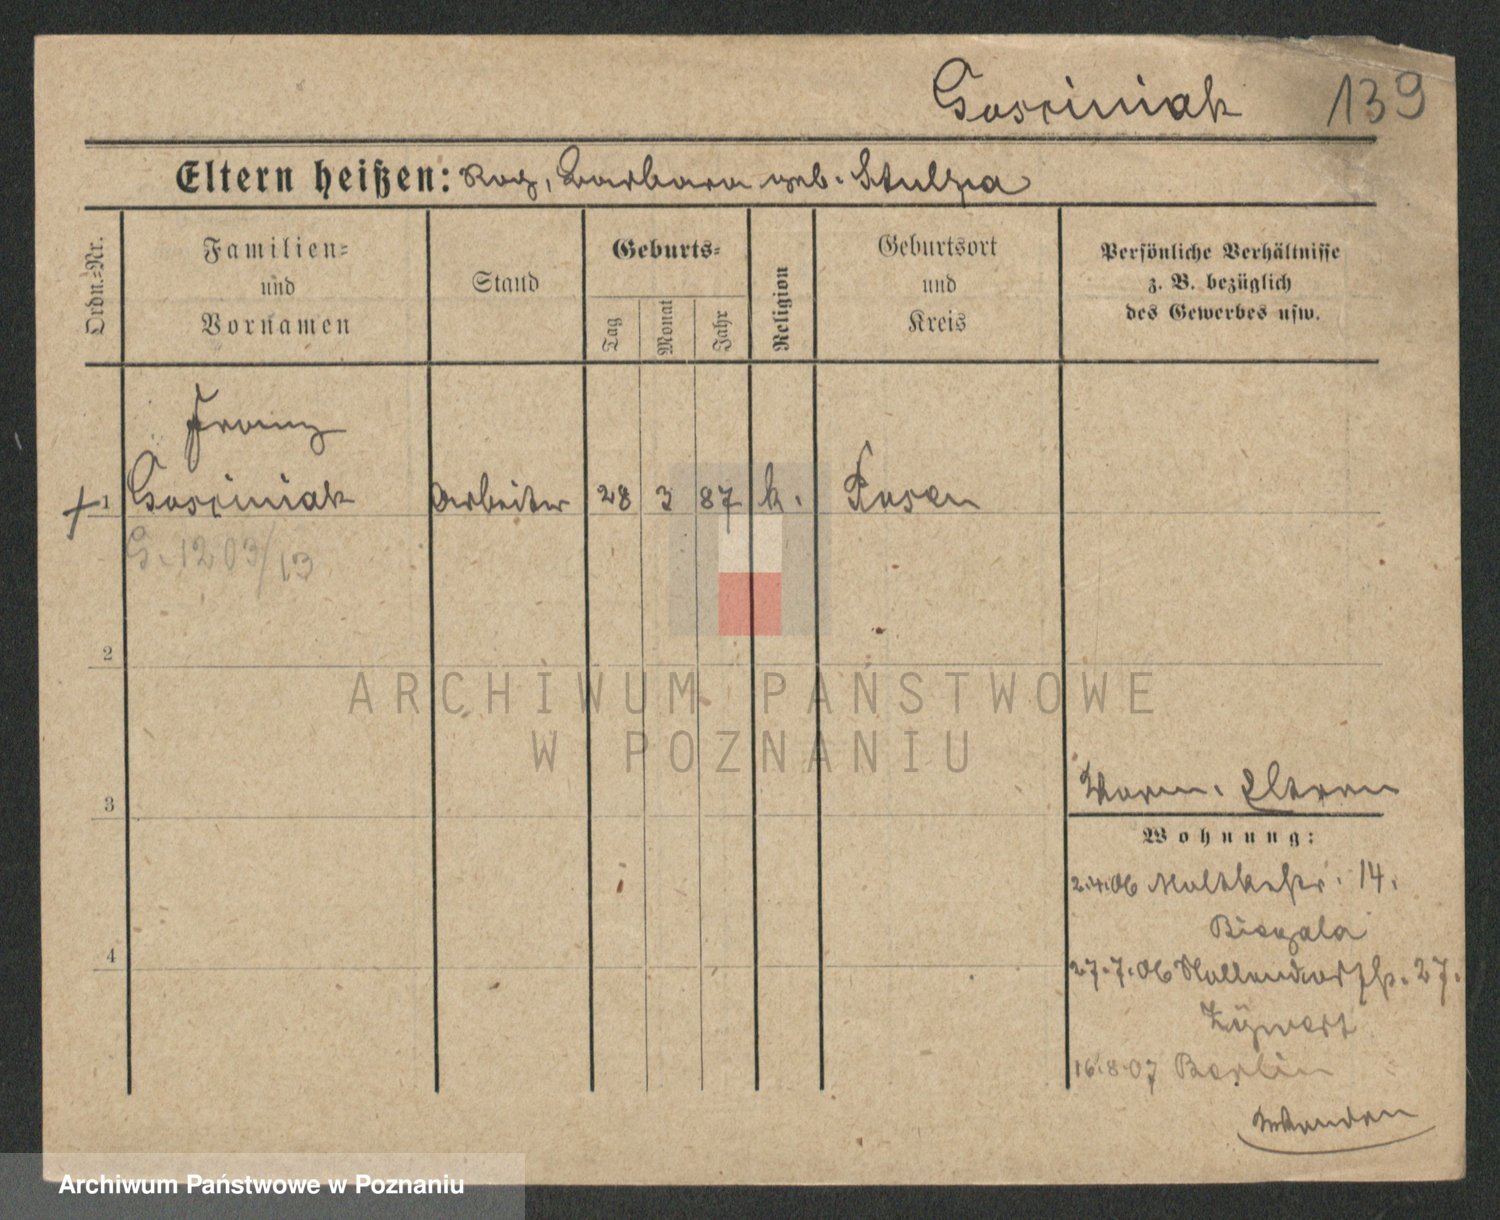 Gosciniak 139
Eltern heißen: Roch, Barbara geb. Stulpa
Ordn.=Nr.
Familien=
und
Vornamen
Stand
Geburts=
Tag
Monat
Jahr
Religion
Geburtsort
und
Kreis
Persönliche Verhältnisse
z. B. bezüglich
des Gewerbes usw.
Franz
1 Gosciniak Arbeiter 28 3 87 k. Posen
G. 1203/13
2
ARCHIWUM PAŃSTWOWE
W POZNANIU
Eltern
3
Wohnung:
2.4.06 Moltkestr. 14.
Biegala
4
27.7.06 Nollendorfstr. 27.
16.8.07 Berlin
Archiwum Państwowe w Poznaniu